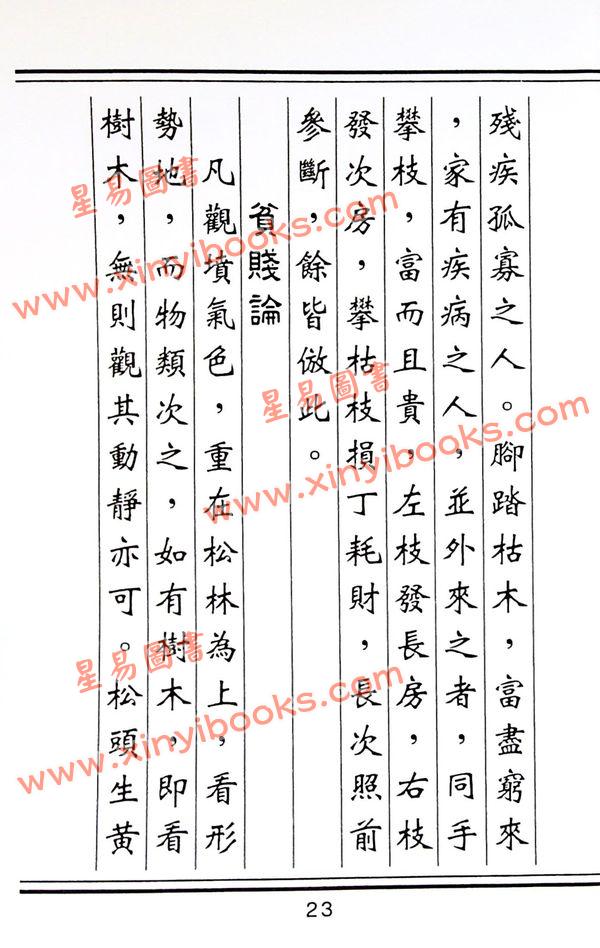 殘疾孤寡之人。腳踏枯木，富盡窮來
，家有疾病之人，並外來之者，同手
攀枝，富而且貴，左枝發長房，右枝
發次房，攀枯枝損丁耗財，長次照前
參斷，餘皆倣此。
貧賤論
凡觀墳氣色，重在松林為上，看形
勢地，而物類次之，如有樹木，即看
樹木，無則觀其動靜亦可。松頭生黃
23
星易圖書
www.xinyibooks.com
星易圖書
www.xinyibooks.com
星易圖書
www.xinyibooks.com